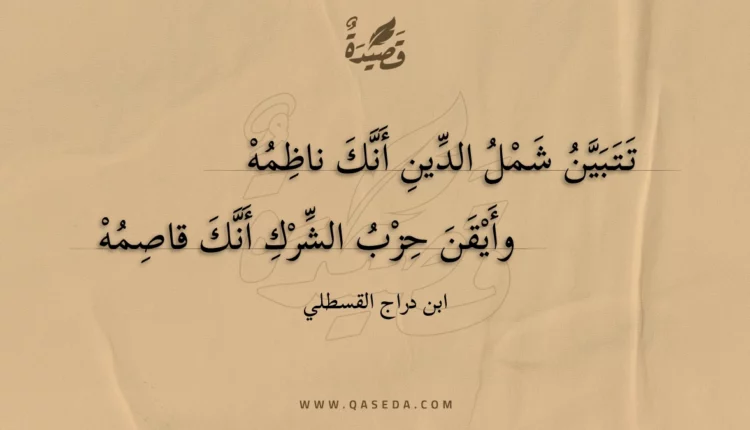 قَصِيْدَةٌ
تَتَبَيَّنُ شَمْلُ الدِّينِ أَنَّكَ ناظِمُهْ
وأَيْقَنَ حِزْبُ الشِّرْكِ أَنَّكَ قاصِمُهْ
ابن دراج القسطلي
WWW.QASEDA.COM